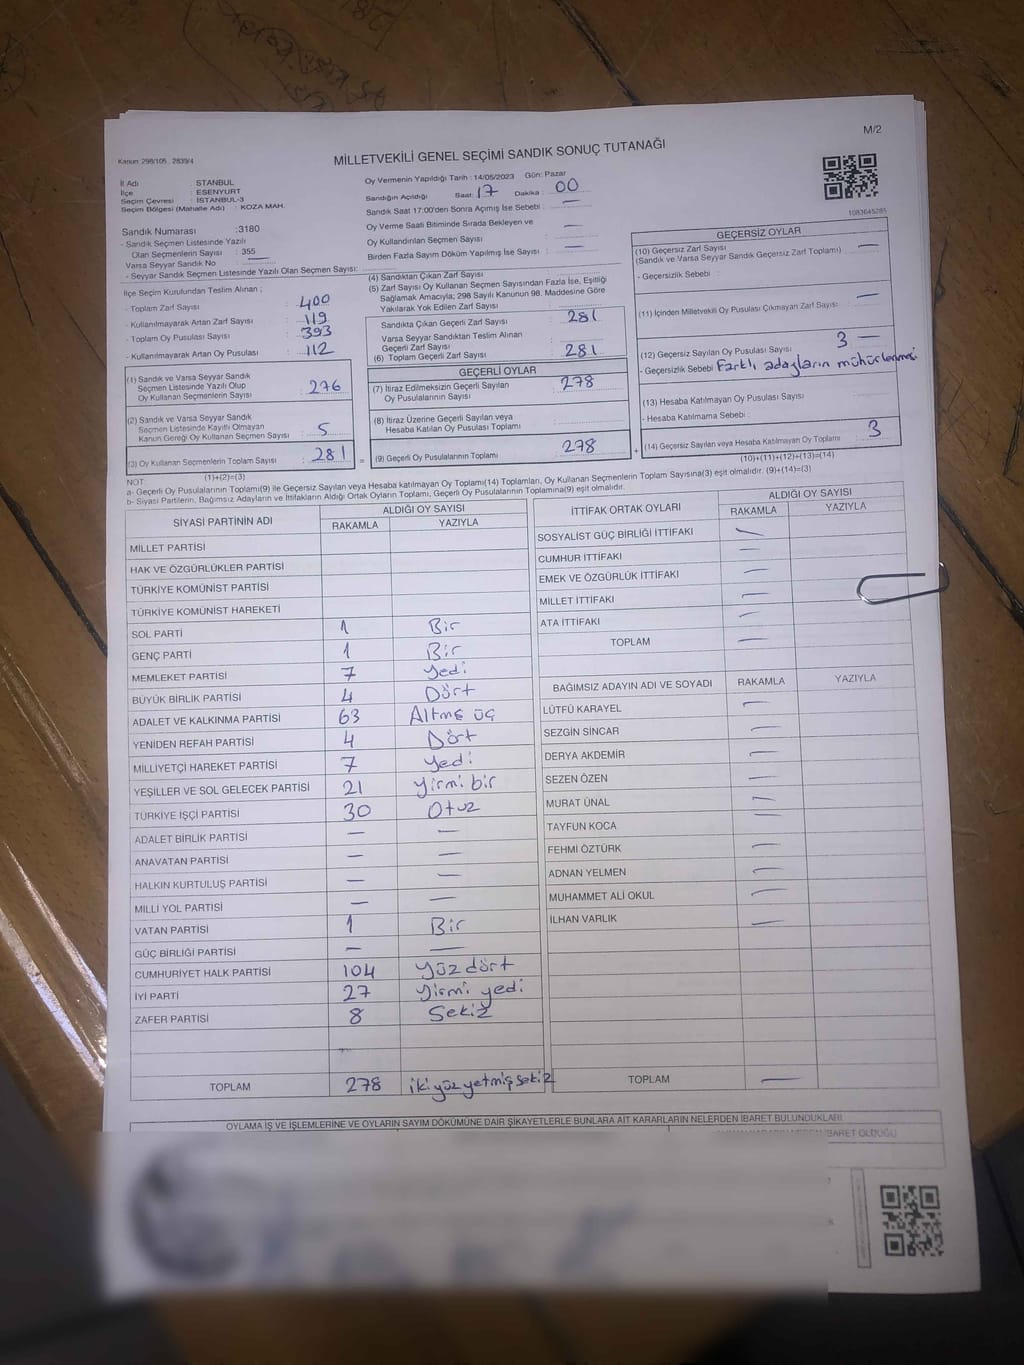 M/2
Kanun: 298/105 , 2839/4
MİLLETVEKİLİ GENEL SEÇİMİ SANDIK SONUÇ TUTANAĞI
İl Adı : STANBUL
İlçe : ESENYURT
Seçim Çevresi : İSTANBUL-3
Seçim Bölgesi (Mahalle Adı) : KOZA MAH.
Sandık Numarası :3180
- Sandık Seçmen Listesinde Yazılı
Olan Seçmenlerin Sayısı : 355
Varsa Seyyar Sandık No —
- Seyyar Sandık Seçmen Listesinde Yazılı Olan Seçmen Sayısı:
Oy Vermenin Yapıldığı Tarih : 14/05/2023 Gün: Pazar
Sandığın Açıldığı Saat: 17 Dakika : 00
Sandık Saat 17:00'den Sonra Açılmış İse Sebebi : —
Oy Verme Saati Bitiminde Sırada Bekleyen ve
Oy Kullandırılan Seçmen Sayısı —
Birden Fazla Sayım Döküm Yapılmış İse Sayısı : —
1083645285
İlçe Seçim Kurulundan Teslim Alınan ;
- Toplam Zarf Sayısı : 400
- Kullanılmayarak Artan Zarf Sayısı : 119
- Toplam Oy Pusulası Sayısı : 393
- Kullanılmayarak Artan Oy Pusulası : 112
(1) Sandık ve Varsa Seyyar Sandık
Seçmen Listesinde Yazılı Olup
Oy Kullanan Seçmenlerin Sayısı : 276
(2) Sandık ve Varsa Seyyar Sandık
Seçmen Listesinde Kayıtlı Olmayan
Kanun Gereği Oy Kullanan Seçmen Sayısı : 5
(3) Oy Kullanan Seçmenlerin Toplam Sayısı : 281
(1)+(2)=(3)
(4) Sandıktan Çıkan Zarf Sayısı
(5) Zarf Sayısı Oy Kullanan Seçmen Sayısından Fazla İse, Eşitliği
Sağlamak Amacıyla; 298 Sayılı Kanunun 98. Maddesine Göre
Yakılarak Yok Edilen Zarf Sayısı :
Sandıkta Çıkan Geçerli Zarf Sayısı : 281
Varsa Seyyar Sandıktan Teslim Alınan
Geçerli Zarf Sayısı
(6) Toplam Geçerli Zarf Sayısı : 281
GEÇERLİ OYLAR
(7) İtiraz Edilmeksizin Geçerli Sayılan
Oy Pusulalarının Sayısı : 278
(8) İtiraz Üzerine Geçerli Sayılan veya
Hesaba Katılan Oy Pusulası Toplamı
(9) Geçerli Oy Pusulalarının Toplamı : 278
GEÇERSİZ OYLAR
(10) Geçersiz Zarf Sayısı
(Sandık ve Varsa Seyyar Sandık Geçersiz Zarf Toplamı) —
- Geçersizlik Sebebi :
(11) İçinden Milletvekili Oy Pusulası Çıkmayan Zarf Sayısı : —
(12) Geçersiz Sayılan Oy Pusulası Sayısı : 3 —
- Geçersizlik Sebebi Farklı adayların mühürlenmesi
(13) Hesaba Katılmayan Oy Pusulası Sayısı
- Hesaba Katılmama Sebebi :
(14) Geçersiz Sayılan veya Hesaba Katılmayan Oy Toplamı : 3
(10)+(11)+(12)+(13)=(14)
NOT:
a- Geçerli Oy Pusulalarının Toplamı(9) ile Geçersiz Sayılan veya Hesaba katılmayan Oy Toplamı(14) Toplamları, Oy Kullanan Seçmenlerin Toplam Sayısına(3) eşit olmalıdır. (9)+(14)=(3)
b- Siyasi Partilerin, Bağımsız Adayların ve İttifakların Aldığı Ortak Oyların Toplamı, Geçerli Oy Pusulalarının Toplamına(9) eşit olmalıdır.
SİYASİ PARTİNİN ADI ALDIĞI OY SAYISI
RAKAMLA YAZIYLA
MİLLET PARTİSİ
HAK VE ÖZGÜRLÜKLER PARTİSİ
TÜRKİYE KOMÜNİST PARTİSİ
TÜRKİYE KOMÜNİST HAREKETİ
SOL PARTİ 1 Bir
GENÇ PARTİ 1 Bir
MEMLEKET PARTİSİ 7 Yedi
BÜYÜK BİRLİK PARTİSİ 4 Dört
ADALET VE KALKINMA PARTİSİ 63 Altmş üç
YENİDEN REFAH PARTİSİ 4 Dört
MİLLİYETÇİ HAREKET PARTİSİ 7 Yedi
YEŞİLLER VE SOL GELECEK PARTİSİ 21 Yirmi bir
TÜRKİYE İŞÇİ PARTİSİ 30 Otuz
ADALET BİRLİK PARTİSİ — —
ANAVATAN PARTİSİ — —
HALKIN KURTULUŞ PARTİSİ — —
MİLLİ YOL PARTİSİ — —
VATAN PARTİSİ 1 Bir
GÜÇ BİRLİĞİ PARTİSİ — —
CUMHURİYET HALK PARTİSİ 104 Yüz dört
İYİ PARTİ 27 Yirmi yedi
ZAFER PARTİSİ 8 Sekiz
TOPLAM 278 iki yüz yetmiş sekiz
İTTİFAK ORTAK OYLARI ALDIĞI OY SAYISI
RAKAMLA YAZIYLA
SOSYALİST GÜÇ BİRLİĞİ İTTİFAKI —
CUMHUR İTTİFAKI —
EMEK VE ÖZGÜRLÜK İTTİFAKI —
MİLLET İTTİFAKI —
ATA İTTİFAKI —
TOPLAM —
BAĞIMSIZ ADAYIN ADI VE SOYADI RAKAMLA YAZIYLA
LÜTFÜ KARAYEL —
SEZGİN SİNCAR —
DERYA AKDEMİR —
SEZEN ÖZEN —
MURAT ÜNAL —
TAYFUN KOCA —
FEHMİ ÖZTÜRK —
ADNAN YELMEN —
MUHAMMET ALİ OKUL —
İLHAN VARLIK —
TOPLAM —
OYLAMA İŞ VE İŞLEMLERİNE VE OYLARIN SAYIM DÖKÜMÜNE DAİR ŞİKAYETLERLE BUNLARA AİT KARARLARIN NELERDEN İBARET BULUNDUKLARI
İBARET OLDUĞU